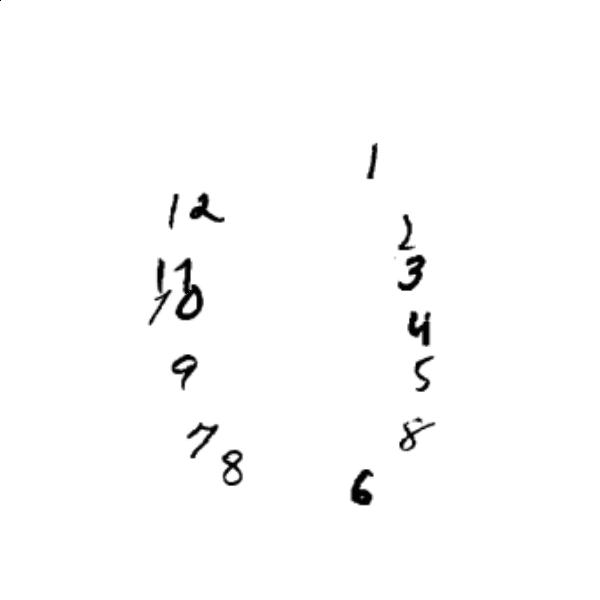 1
12
2
3
11
10
4
9
5
8
7
8
6